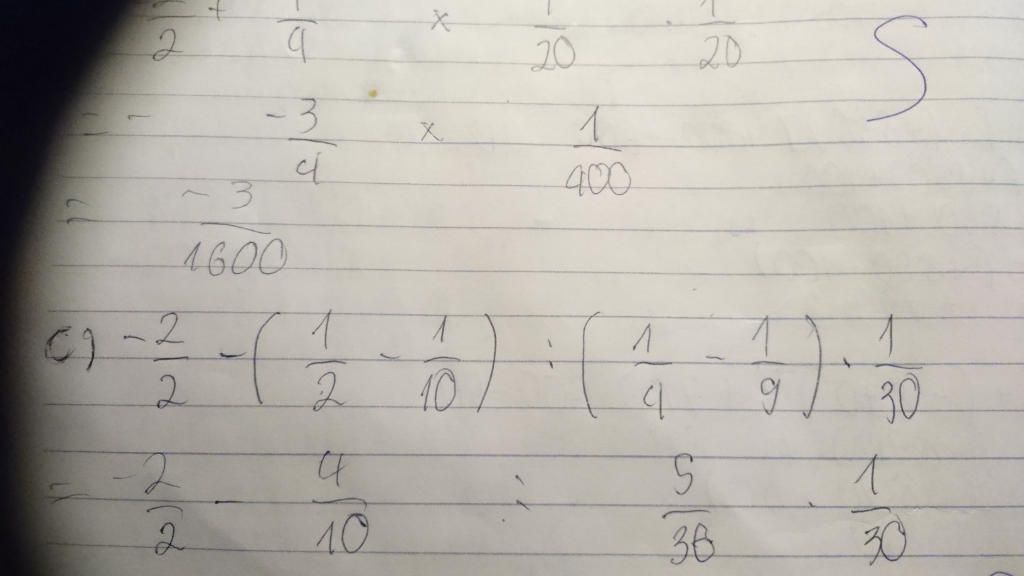 /2 + 1/4 × 1/20 · 1/20
= - -3/4 × 1/400
= -3/1600
c) -2/2 - (1/2 - 1/10) : (1/4 - 1/9) · 1/30
= -2/2 - 4/10 : 5/36 · 1/30